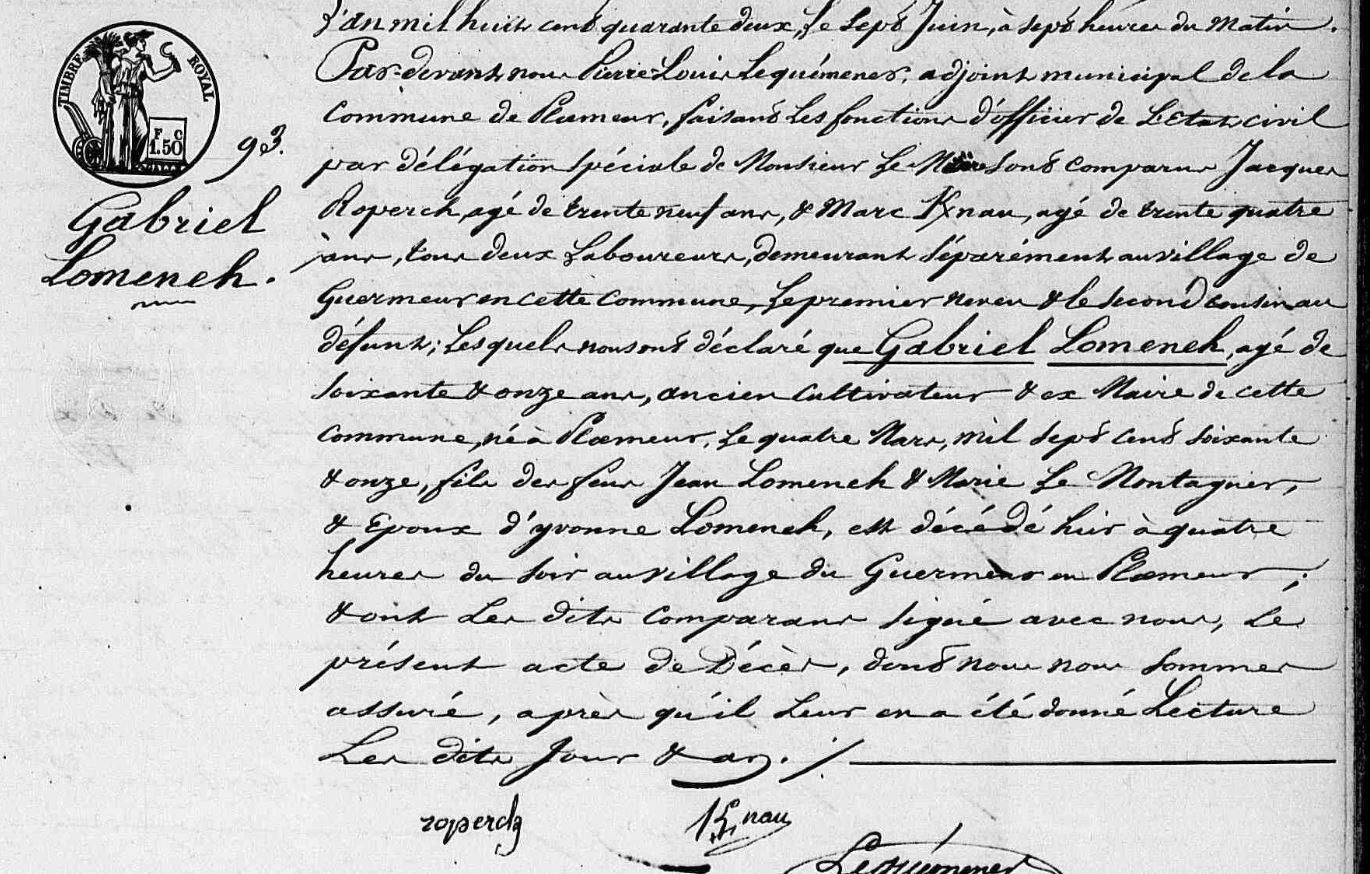 TIMBRE ROYAL
F. C
1.50
93.
Gabriel
Lomeneh.
L'an mil huit cent quarante deux, Le sept Juin, à sept heures du Matin.
Par-devant nous Pierre Louis Lequémener, adjoint municipal de la
Commune de Plœmeur, faisant Les fonctions d'officier de L'Etat civil
par délégation spéciale de Monsieur Le Maire Sont comparus Jacques
Roperch, agé de trente neuf ans, & Marc Kxnau, agé de trente quatre
ans, tous deux Laboureurs, demeurant séparément au village de
Guermeur en cette Commune, Le premier neveu & le second cousin au
défunt; Lesquels nous ont déclaré que Gabriel Lomeneh, agé de
soixante & onze ans, ancien Cultivateur & ex Maire de cette
Commune, né à Plœmeur, Le quatre Mars, mil sept cent soixante
& onze, fils des feus Jean Lomeneh & Marie Le Montagner,
& Epoux d'yvonne Lomeneh, est décédé hier à quatre
heures du soir au village du Guermeur en Plœmeur;
& ont Les dits Comparans signé avec nous, Le
présent acte de Décès, dont nous nous sommes
assuré, après qu'il Leur en a été donné Lecture
Les dits Jour & an. ./.
roperch
Kxnau
Lequémener